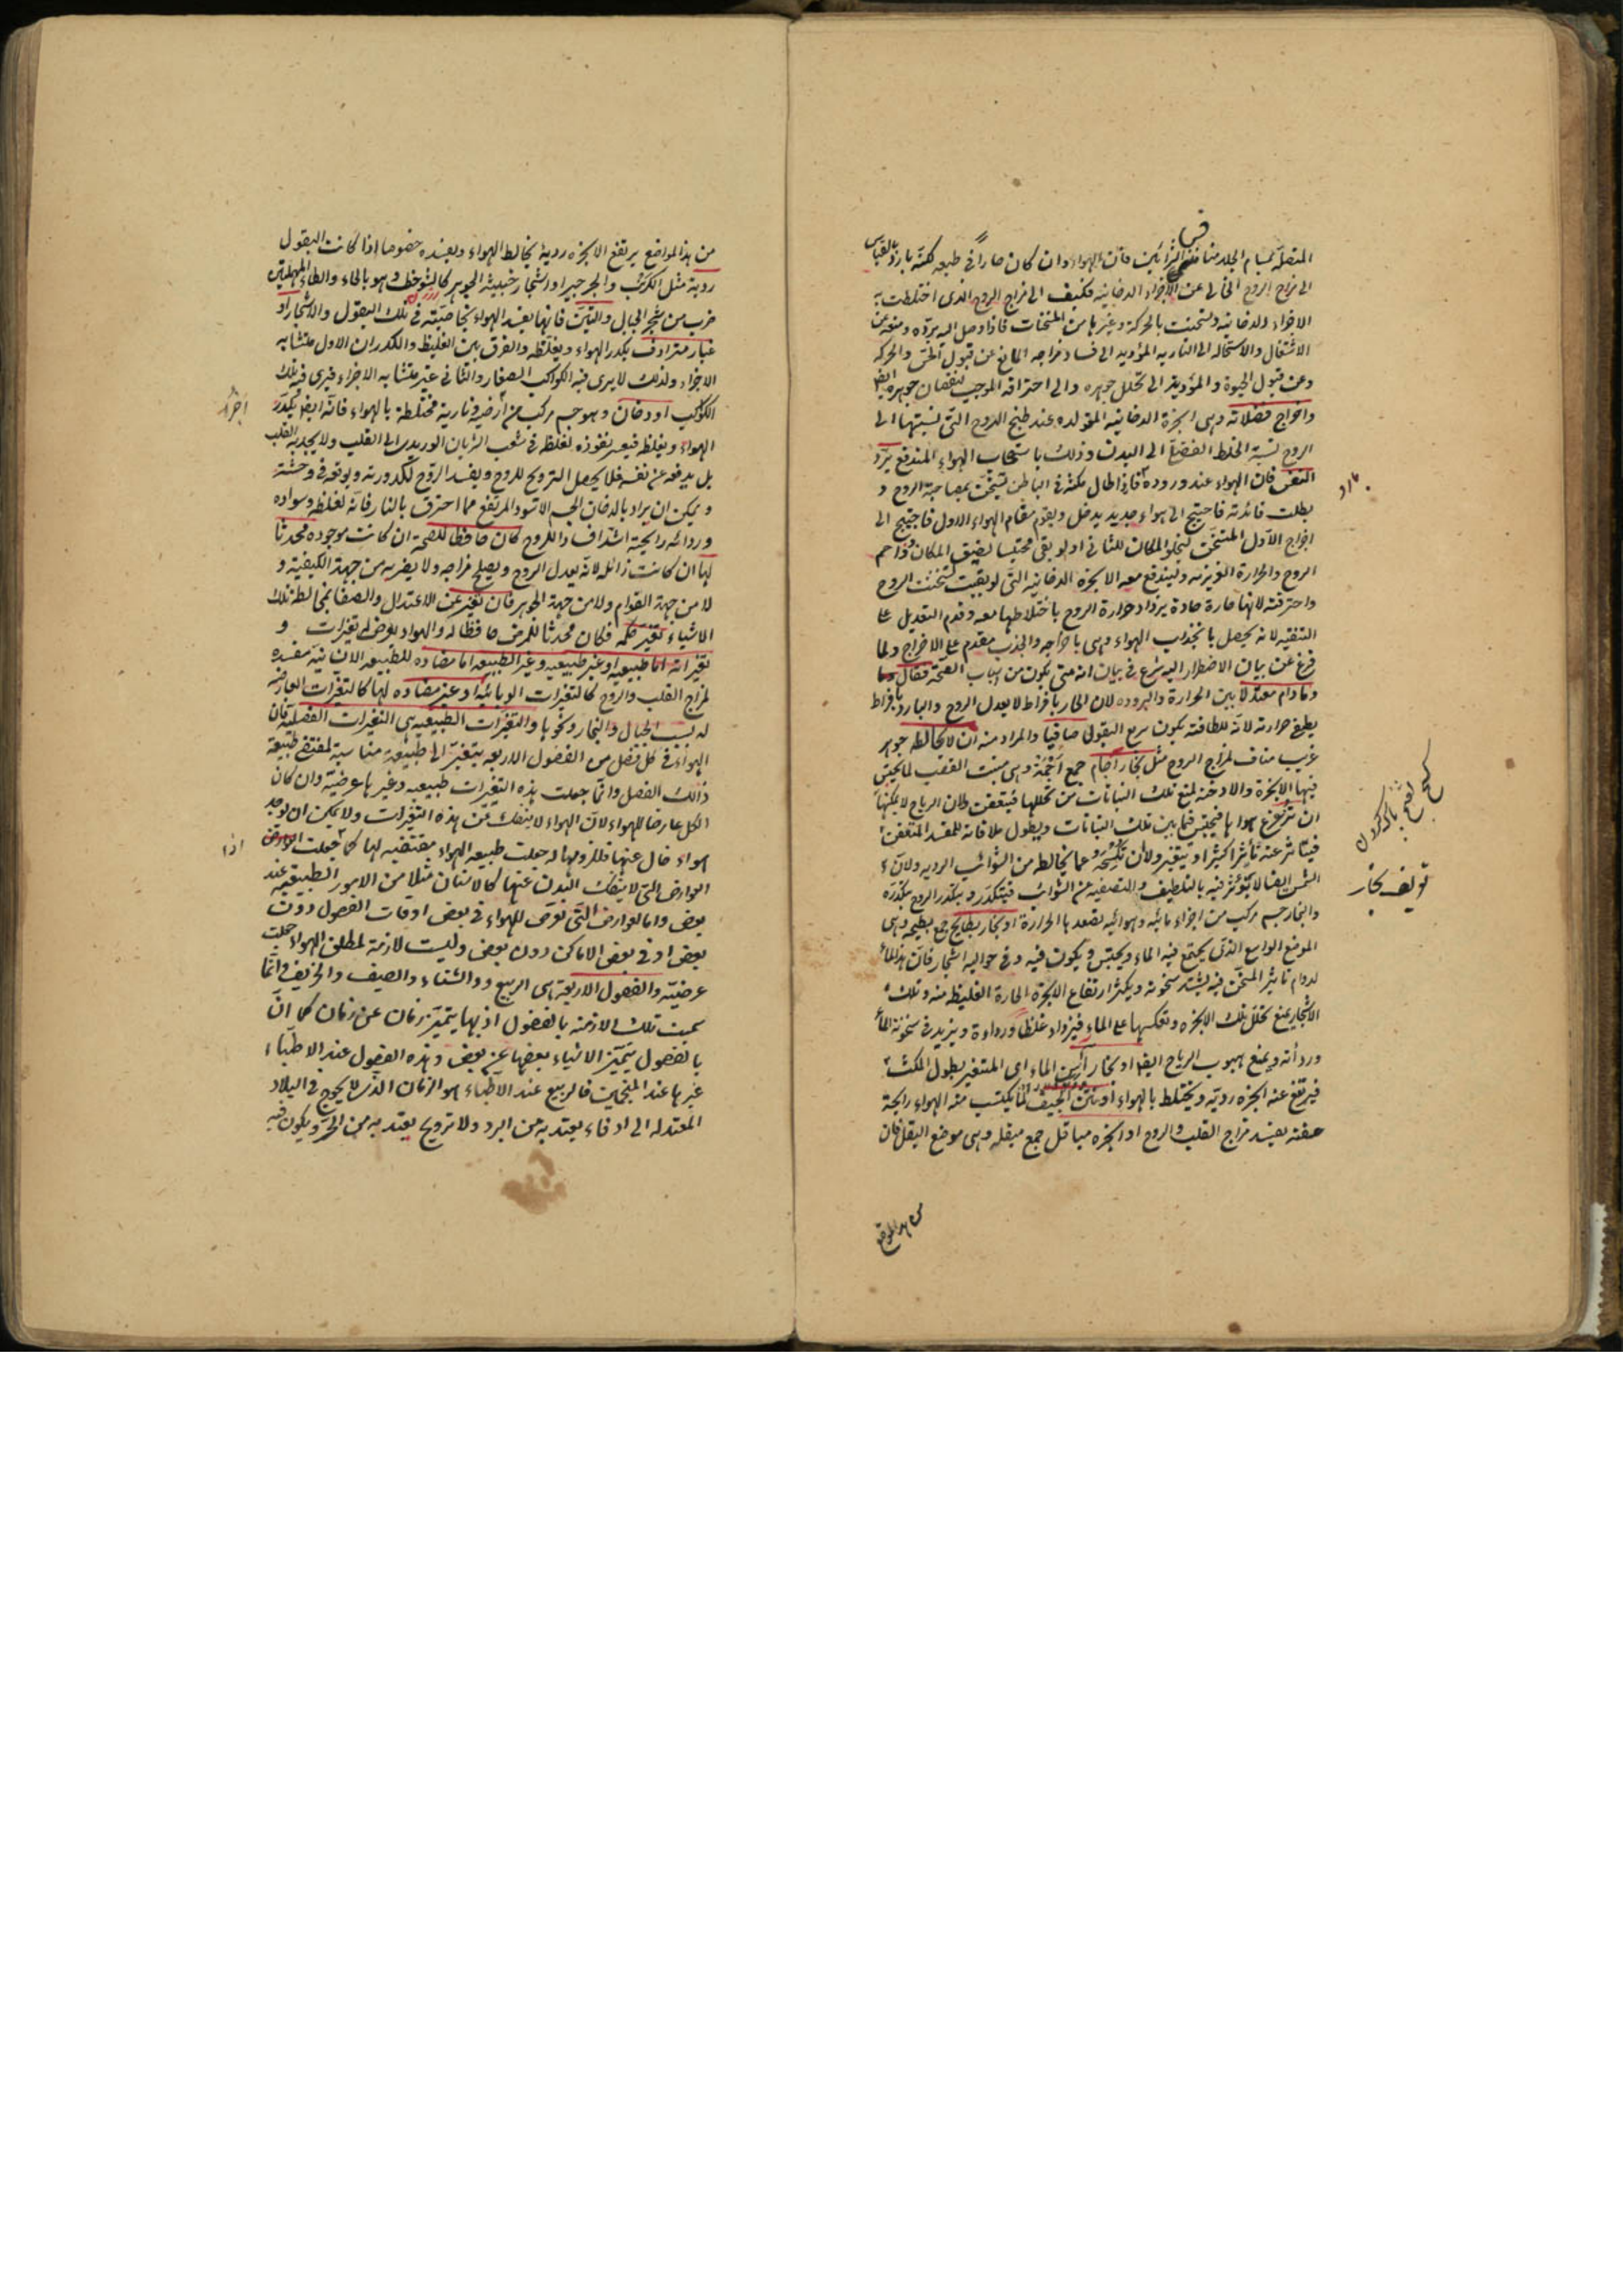 المتصلة بمسام الجلد منافس الشرائين فان الهواء وان كان حارا في طبعه لكنه بارد بالقياس
الى مزاج الروح الخالي عن الاجزاء الدخانية فكيف الى مزاج الروح الذي اختلطت به
الاجزاء الدخانية وتسخنت بالحركة وغيرها من المسخنات فاذا وصل اليه برده ومنعه عن
الاشتعال والاستحالة الى النارية المؤدية الى فساد مزاجه المانع عن قبول الحس والحركة
وعن قبول الحيوة والمؤدية الى تحلل جوهره والى احتراقه الموجب لنقصان جوهره ايضا
واخراج فضلاته وهي الابخرة الدخانية المتولدة عند طبخ الروح التي نسبتها الى
الروح نسبة الخلط الفضلي الى البدن وذلك باستصحاب الهواء المندفع برد
النفس فان الهواء عند وروده فاذا طال مكثه في الباطن تسخن بمصاحبة الروح و
بطلت فائدته فاحتيج الى هواء جديد يدخل ويقوم مقام الهواء الاول فاحتيج الى
اخراج الاول المتسخن ليخلو المكان للثاني اذ لو بقي محتبسا لضيق المكان وزاحم
الروح والحرارة الغريزية وليندفع معه الابخرة الدخانية التي لو بقيت لتسخنت الروح
واحترقت لانها حارة حادة يزداد حرارة الروح باختلاطها معه وقدم التعديل على
التنقية لانه يحصل بانجذاب الهواء وهي باخراجه والجذب مقدم على الاخراج ولما
فرغ عن بيان الاضطرار اليه شرع في بيان انه متى يكون من اسباب الصحة فقال وما
وما دام معتدلا بين الحرارة والبرودة لان الحار بافراط لا يعدل الروح والبارد بافراط
يطفي حرارته لانه للطافته يكون سريع القبول صافيا والمراد منه ان لا يخالطه جوهر
غريب مناف لمزاج الروح مثل بخار آجام جمع اجمة وهي منبت القصب لما يحتبس
فيها الابخرة والادخنة لمنع تلك النباتات من تحللها فيتعفن ولان الرياح لا يمكنها
ان تزعزع هواها فيحتبس فيما بين تلك النباتات ويطول ملاقاته للمفسد المتعفن
فيتاثر عنه تاثيرا كثيرا ويتغير ولان عما يخالطه من الشوائب الردية ولان
الشمس ايضا لا يؤثر فيه بالتلطيف والتصفية عن الشوائب فيتكدر ويتكدر الروح بتكدره
والبخار جسم مركب من اجزاء مائية وهوائية تصعدها الحرارة او بخار بطايح جمع بطيحة وهي
الموضع الواسع الذي يجتمع فيه الماء ويحتبس ويكون فيه وفي حواليه اشجار فان هذا الماء
لدوام تاثير المسخن فيه يشتد سخونته ويكثر ارتفاع الابخرة الحارة الغليظة منه وتلك
الاشجار يمنع تحلل تلك الابخرة وتعكسها على الماء فيزداد غلظا ورداءة ويزيد في سخونة الماء
ورداته ويمنع هبوب الرياح ايضا او بخار آسن الماء اي المتغير بطول المكث
فيرتفع عنه ابخرة ردية ويختلط بالهواء او نتن الجيف لما يكتسب منه الهواء رايحة
عفنة يفسد مزاج القلب والروح او ابخرة مباقل جمع مبقلة وهي موضع البقل فان
تعريف بخار
من هذا المواضع
من هذا المواضع يرتفع الابخرة ردية يخالط الهواء ويفسده خصوصا اذا كانت البقول
ردية مثل الكرنب والجرجير او اشجار خبيثة الجوهر كالشوحط وهو بالحاء والطاء المهملتين
ضرب من شجر الجبال والتين فانها يفسد الهواء بخاصيته في تلك البقول والاشجار او
غبار مترادف يكدر الهواء ويغلظه والفرق بين الغليظ والكدر ان الاول متشابه
الاجزاء ولذلك لا يرى فيه الكواكب الصغار والثاني غير متشابه الاجزاء فيرى فيه تلك
الكواكب او دخان وهو جسم مركب من ارضية ونارية مختلطة بالهواء فانه ايضا يكدر
الهواء ويغلظه فيعسر نفوذه لغلظه في شعب الشريان الوريدي الى القلب ولا يجذبه القلب
بل يدفعه عن نفسه فلا يحصل الترويح للروح ويفسد الروح لكدورته ويوقعه في وحشة
ويمكن ان يراد بالدخان الجسم الاسود المرتفع مما احترق بالنار فانه لغلظه وسواده
ورداءة رايحته اشد افسادا للروح كان حافظا للصحة ان كانت موجودة محدثا
لها ان كانت زائلة لانه يعدل الروح ويصلح مزاجه ولا يضر به من جهة الكيفية و
لا من جهة القوام ولا من جهة الجوهر فان تغير عن الاعتدال والصفا بمخالطة تلك
الاشياء تغير حكمه فكان محدثا للمرض حافظا له والهواء يعرض له تغيرات و
تغيراته اما طبيعية او غير طبيعية وغير الطبيعية اما مضادة للطبيعة الانسانية مفسدة
لمزاج القلب والروح كالتغيرات الوبائية او غير مضادة لها كالتغيرات العارضة
له بسبب الجبال والبخار ونحوها والتغيرات الطبيعية هي التغيرات الفصلية فان
الهواء في كل فصل من الفصول الاربعة يتغير الى طبيعة مناسبة لمقتضى طبيعة
ذلك الفصل وانما جعلت هذه التغيرات طبيعية وغيرها عرضية وان كان
الكل عارضا للهواء لان الهواء لا ينفك عن هذه التغيرات ولا يمكن ان يوجد
هواء خال عنها فللزومها له جعلت طبيعة الهواء مقتضية لها كما جعلت
العوارض التي لا ينفك البدن عنها كالاسنان مثلا من الامور الطبيعية عند
بعض واما العوارض التي تعرض للهواء في بعض اوقات الفصول دون
بعض او في بعض الاماكن دون بعض وليست لازمة لمطلق الهواء جعلت
عرضية والفصول الاربعة هي الربيع والشتاء والصيف والخريف وانما
سميت تلك الازمنة بالفصول اذ بها يتميز زمان عن زمان كما ان
بالفصول يتميز الاشياء بعضها عن بعض وهذه الفصول عند الاطباء
غيرها عند المنجمين فالربيع عند الاطباء هو الزمان الذي لا يحوج في البلاد
المعتدلة الى ادفاء يعتد به من البرد ولا ترويح يعتد به من الحر ويكون فيه